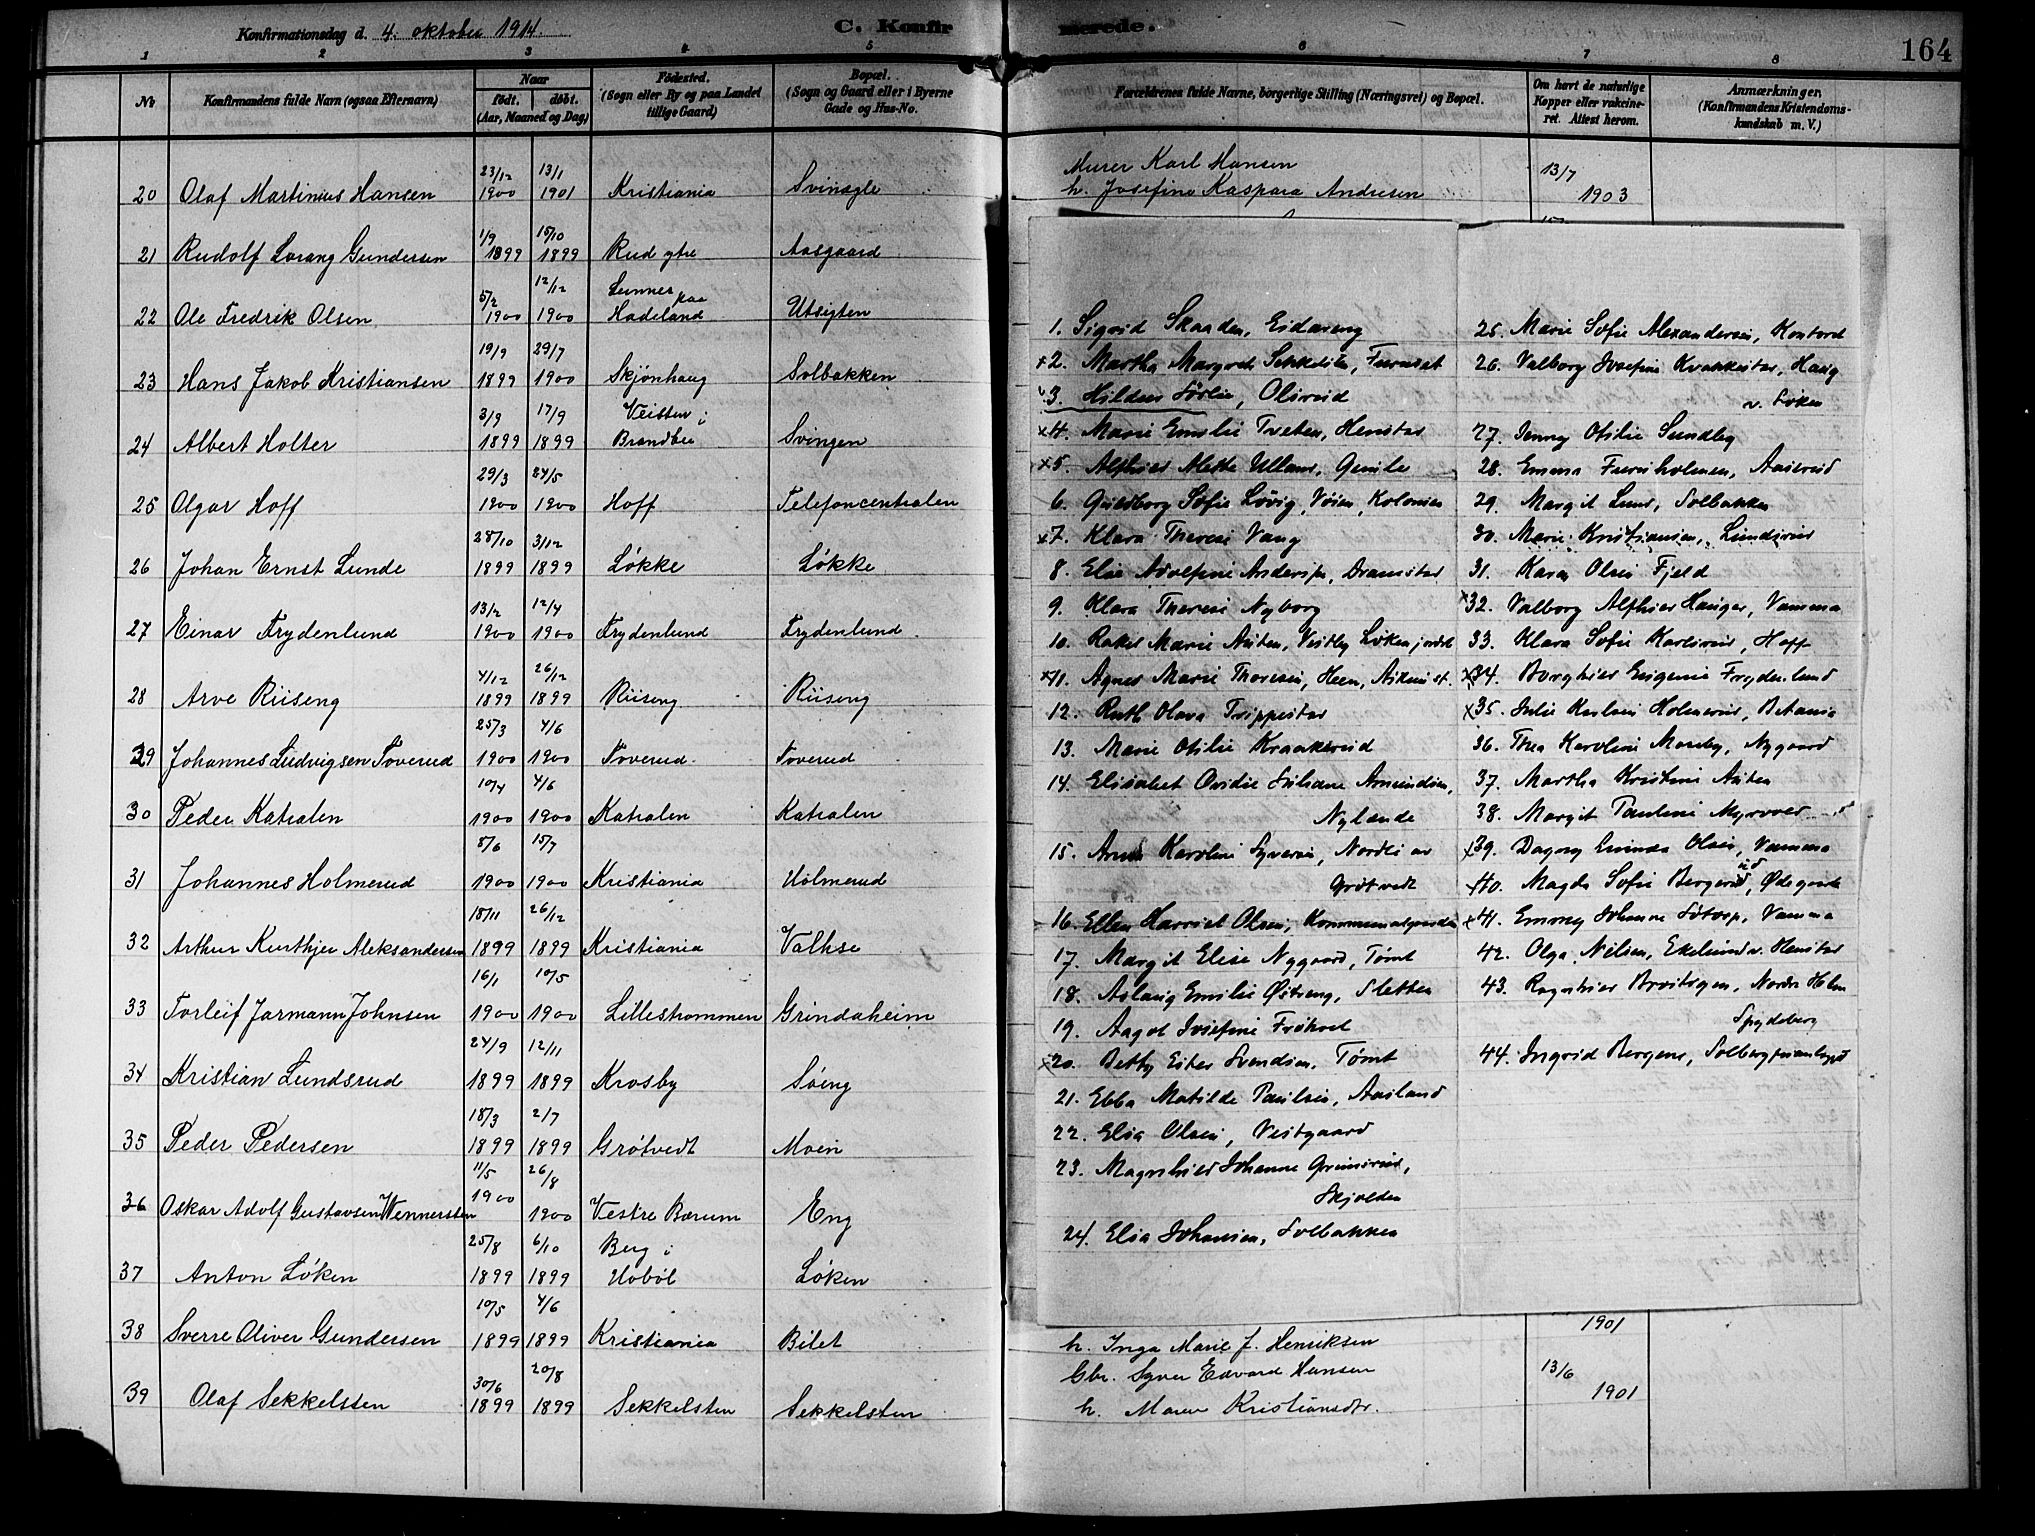 Konfirmationsdag d. 4. oktober 1914.
C. Konfirmerede.
164
1 2 3 4 5 6 7 8
No
Konfirmandens fulde Navn (ogsaa Efternavn)
Naar
født. døbt.
(Aar, Maaned og Dag)
Fødested.
(Sogn eller By og paa Landet
tillige Gaard)
Bopæl.
(Sogn og Gaard eller i Byerne
Gade og Hus-No.
Forældrenes fulde Navne, borgerlige Stilling (Næringsvei) og Bopæl.
Om havt de naturlige
Kopper eller vakcine-
ret. Attest herom.
Anmærkninger.
(Konfirmandens Kristendoms-
kundskab m. V.)
23/12 13/1
20 Olaf Martinius Hansen 1900 1901 Kristiania Svinagle
Murer Karl Hansen 13/7
h. Josefine Kaspara Andresen 1903
1/9 15/10
21 Rudolf Lorang Gundersen 1899 1899 Rud ytre Aasgaard
5/2 12/12 Lunner paa
22 Ole Fredrik Olsen 1900 1900 Hadeland Utsigten
19/9 29/7
23 Hans Jakob Kristiansen 1899 1900 Skjønhaug Solbakken
3/9 17/9 Veisten i
24 Albert Holter 1899 1899 Brandbu Svingen
29/3 24/5
25 Olgar Hoff 1900 1900 Hoff Telefoncentralen
28/10 3/12
26 Johan Ernst Lunde 1899 1899 Løkke Løkke
13/2 12/4
27 Einar Frydenlund 1900 1900 Frydenlund Frydenlund
4/12 26/12
28 Arve Riiseng 1899 1899 Riiseng Riiseng
25/3 4/6
29 Johannes Ludvigsen Toverud 1900 1900 Toverud Toverud
10/4 4/6
30 Peder Katralen 1900 1900 Katralen Katralen
8/6 15/7
31 Johannes Holmerud 1900 1900 Kristiania Holmerud
18/11 26/12
32 Arthur Aleksandersen 1899 1899 Kristiania
16/1 10/5
33 Torleif Jarmann Johnsen 1900 1900 Lillestrommen Grindaheim
24/9 12/11
34 Kristian Lundsrud 1899 1899 Krosby Søing
18/3 2/7
35 Peder Pedersen 1899 1899 Grøtvedt Moen
11/5 26/8
36 Oskar Adolf Gustavsen Wennersten 1900 1900 Vestre Bærum Eng
25/8 6/10 Berg i
37 Anton Løken 1899 1899 Hobøl Løken
10/5 4/6
38 Sverre Oliver Gundersen 1899 1899 Kristiania Bilet
30/6 20/8
39 Olaf Sekkelsten 1899 1899 Sekkelsten Sekkelsten
1. Sigrid Skaaden, Eidareng
x2. Martha Margrete Sekkelsten, Furuset
3. Hildur Sørlie, Olsrud
x4. Marie Emilie Tveten, Henstad
x5. Alfhild Mette Ulland, Gemle
6. Guldborg Sofie Løvig, Vøien, Kolonien
x7. Klara Therese Vang
8. Else Adolfine Andersen, Dramstad
9. Klara Therese Nyborg
10. Rakel Marie Auten, Vestby Løkenjordet
x11. Agnes Marie Thoresen, Heen, Askim st.
12. Ruth Olava Trippestad
13. Marie Otilie Kraakerud
14. Elisabet Ovidie Juliane Amundsen,
Nylende
15. Anna Karoline Syversen, Nordli av
Grøtvedt
16. Ellen Harriet Olsen, Kommunelgaarden
17. Margit Elise Nygaard, Tømt
18. Aslaug Emilie Østreng, Sletten
19. Aagot Josefine Frøshol
x20. Betty Ester Svendsen, Tømt
21. Ebba Matilde Paulsen, Aasland
22. Elsa Olsen, Vestgaard
23. Magnhild Johanne Grimsrud,
Skjolden
24. Elsa Johansen, Solbakken
25. Marie Sofie Alexandersen, Kontoret
26. Valborg Josefine Kvakkestad, Haag
v. Løken
27. Jenny Otilie Sundby
28. Emma Furuholmen, Aaserud
29. Margit Lund, Solbakken
30. Marie Kristiansen, Lundsrud
31. Karen Olsen Fjeld
x32. Valborg Alfhild Hauger, Vamma
33. Klara Sofie Karlsrud, Hoff
x34. Borghild Eugenie Frydenlund
x35. Julie Karlsen Holmerud, Betania
36. Thea Karoline Moseby, Nygaard
37. Martha Kristine Auten
38. Margit Pauline Myrvold
x39. Dagny Olsen, Vamma
x40. Magda Sofie Bergerud, Ødegaard
x41. Emmy Johanne Søtorp, Vamma
42. Olga Nilsen, Ekelund v. Henstad
43. Ragnhild Nordre Holm
Spydeberg
44. Ingrid Bergene, Solbergfosanlægget
1901
h. Inga Marie J. Henriksen
Gbr. Syver Edvard Hansen 13/6
h. Maren Kristiansdtr. 1901